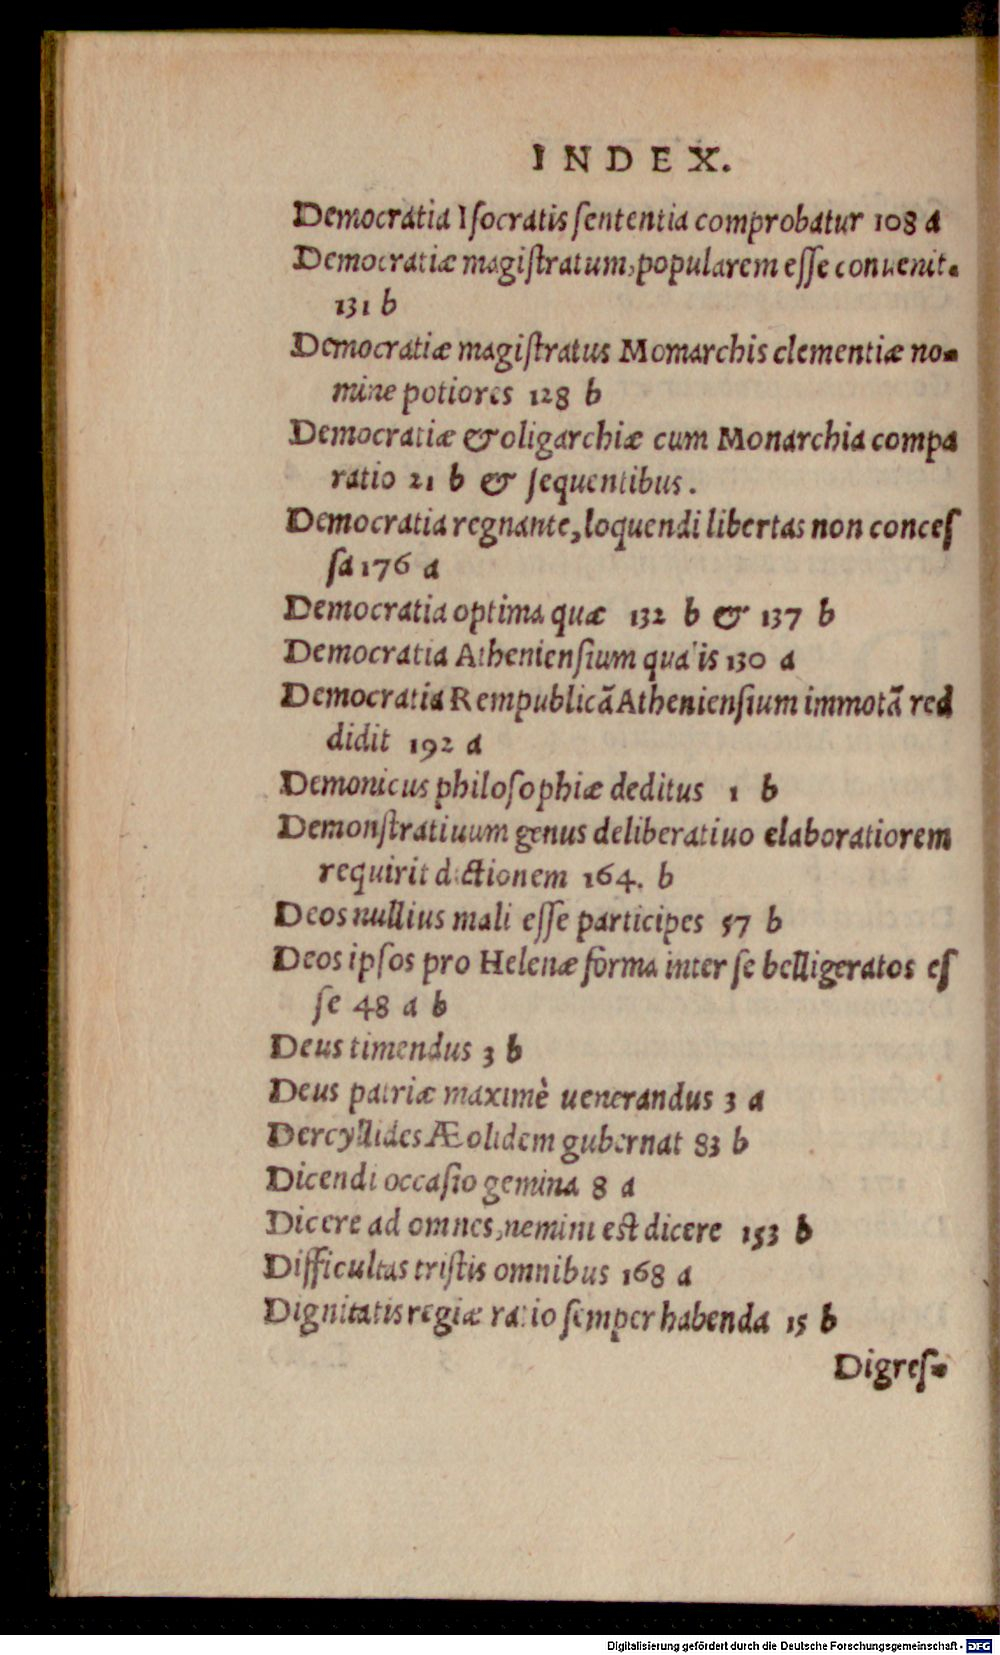 INDEX.
Democratia Iſocratis ſententia comprobatur 108 a
Democratiæ magiſtratum, popularem eſſe conuenit.
131 b
Democratiæ magiſtratus Momarchis clementiæ no-
mine potiores 128 b
Democratiæ & oligarchiæ cum Monarchia compa
ratio 21 b & ſequentibus.
Democratia regnante, loquendi libertas non conceſ
ſa 176 a
Democratia optima quæ 132 b & 137 b
Democratia Athenienſium qualis 130 a
Democratia Rempublicã Athenienſium immotã red
didit 192 a
Demonicus philoſophiæ deditus 1 b
Demonſtratiuum genus deliberatiuo elaboratiorem
requirit dictionem 164. b
Deos nullius mali eſſe participes 57 b
Deos ipſos pro Helenæ forma inter ſe belligeratos eſ
ſe 48 a b
Deus timendus 3 b
Deus patriæ maximè uenerandus 3 a
Dercyllides Æolidem gubernat 83 b
Dicendi occaſio gemina 8 a
Dicere ad omnes, nemini est dicere 153 b
Difficultas triſtis omnibus 168 a
Dignitatis regiæ ratio ſemper habenda 15 b
Digreſ-
Digitalisierung gefördert durch die Deutsche Forschungsgemeinschaft - DFG